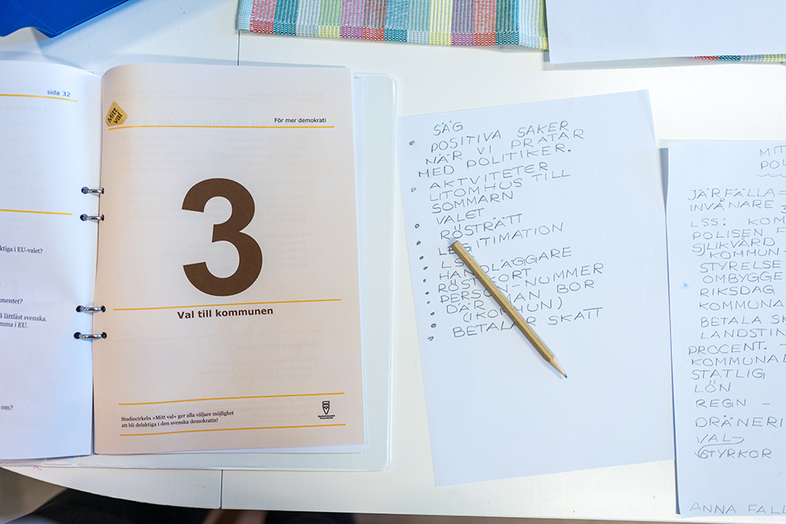 sida 32
ktiga i EU-valet?
mentet?
å lättläst svenska.
mma i EU.
om?
Mitt
val
För mer demokrati
3
Val till kommunen
Studiecirkeln »Mitt val» ger alla väljare möjlighet
att bli delaktiga i den svenska demokratin!
SÄG
POSITIVA SAKER
NÄR VI PRATAR
MED POLITIKER.
AKTVITETER
UTOMHUS TILL
SOMMARN
VALET
RÖSTRÄTT
LEGITIMATION
HANDLÄGGARE
RÖSTKORT
PERSON-NUMMER
DÄR MAN BOR
(IKOMUN)
BETALAR SKATT
MIT
POL
JÄRFÄLLA=
INVÅNARE 3
LSS: KOM
POLISEN F
SJUKVÅRD
KOMMUN-
STYRELSE
OMBYGGE
RIKSDAG
KOMMUNA
BETALA SK
LANDSTIN
PROCENT. -
KOMMUNAL
STATLIG
LÖN
REGN -
DRÄNERI
VAL
STYRKOR
ANNA FALL